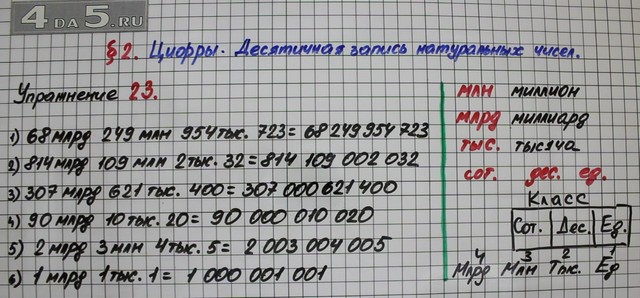 4 DA 5.RU
§2. Цифры. Десятичная запись натуральных чисел.
Упражнение 23.
1) 68 млрд 249 млн 954 тыс. 723 = 68 249 954 723
2) 814 млрд 109 млн 2 тыс. 32 = 814 109 002 032
3) 307 млрд 621 тыс. 400 = 307 000 621 400
4) 90 млрд 10 тыс. 20 = 90 000 010 020
5) 2 млрд 3 млн 4 тыс. 5 = 2 003 004 005
6) 1 млрд 1 тыс. 1 = 1 000 001 001
млн миллион
млрд миллиард
тыс. тысяча
сот. дес. ед.
Класс
Сот. Дес. Ед.
4 3 2 1
Млрд Млн Тыс. Ед